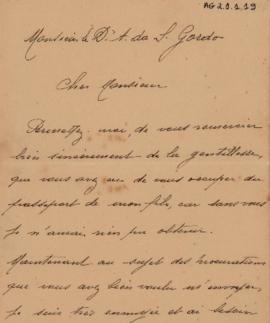 AG 20.1.19
Monsieur le D. A. da S. Gordo
Cher Monsieur
Permettez-moi, de vous remercier
bien sincèrement de la gentillesse,
que vous avez eu de vous occuper du
passeport de mon fils, car sans vous
je n'aurai rien pu obtenir.
Maintenant au sujet des procurations
que vous avez bien voulu m'envoyer,
je suis très ennuyée et ai besoin